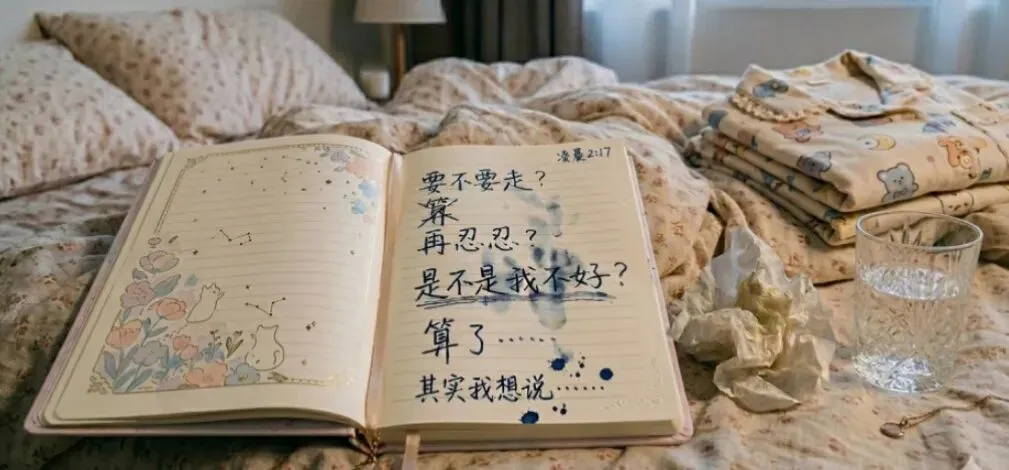 凌晨2:17
要不要走？
算
再忍忍？
是不是我不好？
算了……
其实我想说……